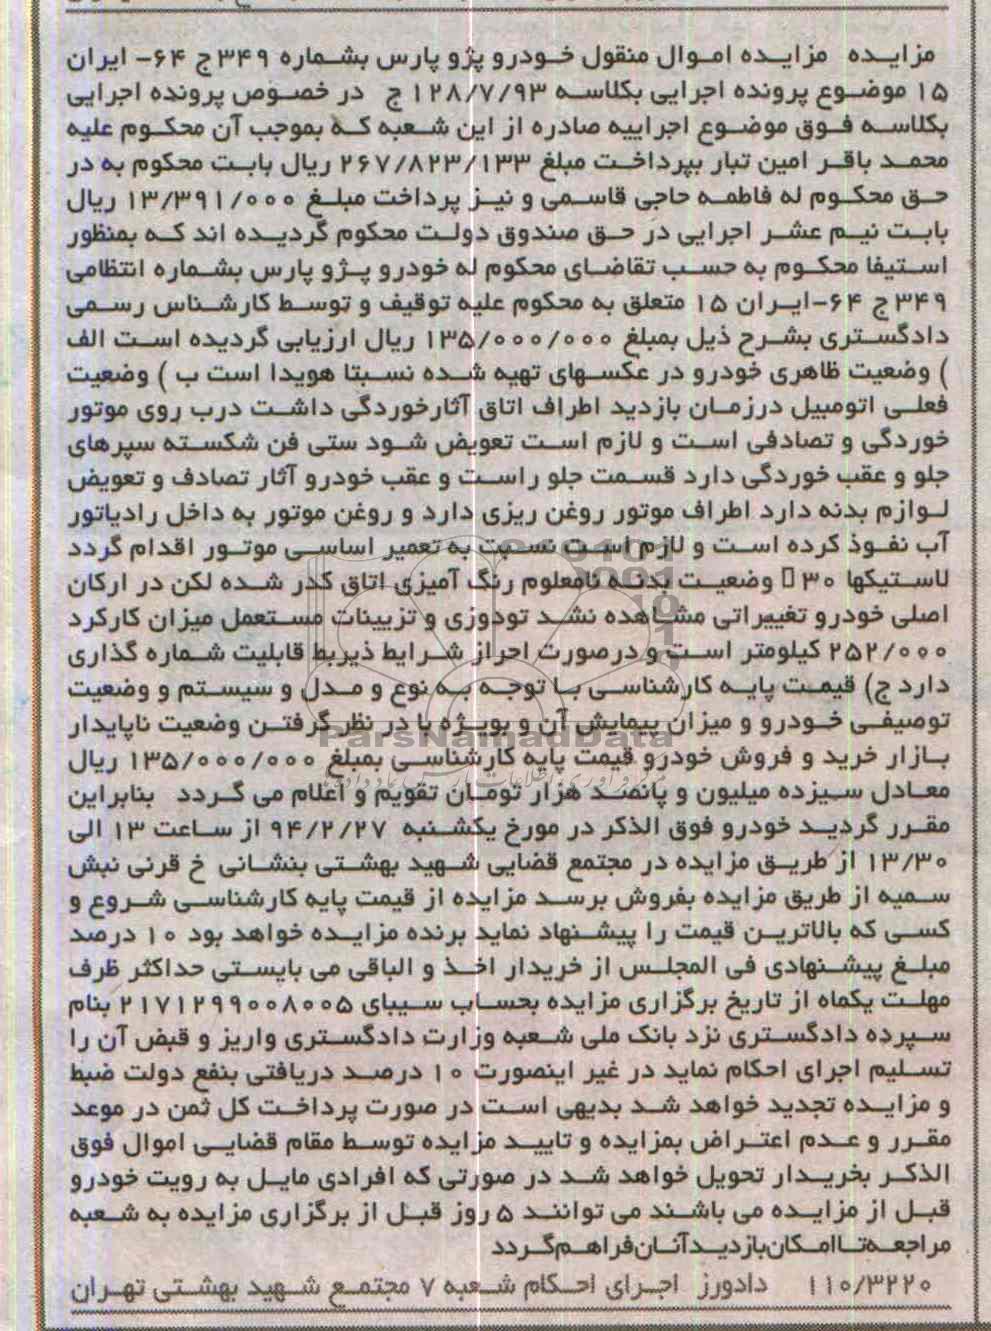 مزایده مزایده اموال منقول خودرو پژو پارس بشماره ۳۴۹ ج ۶۴- ایران
۱۵ موضوع پرونده اجرایی بکلاسه ۱۲۸/۷/۹۳ ج در خصوص پرونده اجرایی
بکلاسه فوق موضوع اجراییه صادره از این شعبه که بموجب آن محکوم علیه
محمد باقر امین تبار بپرداخت مبلغ ۲۶۷/۸۲۳/۱۳۳ ریال بابت محکوم به در
حق محکوم له فاطمه حاجی قاسمی و نیز پرداخت مبلغ ۱۳/۳۹۱/۰۰۰ ریال
بابت نیم عشر اجرایی در حق صندوق دولت محکوم گردیده اند که بمنظور
استیفا محکوم به حسب تقاضای محکوم له خودرو پژو پارس بشماره انتظامی
۳۴۹ ج ۶۴-ایران ۱۵ متعلق به محکوم علیه توقیف و توسط کارشناس رسمی
دادگستری بشرح ذیل بمبلغ ۱۳۵/۰۰۰/۰۰۰ ریال ارزیابی گردیده است الف
) وضعیت ظاهری خودرو در عکسهای تهیه شده نسبتا هویدا است ب ) وضعیت
فعلی اتومبیل درزمان بازدید اطراف اتاق آثارخوردگی داشت درب روی موتور
خوردگی و تصادفی است و لازم است تعویض شود ستی فن شکسته سپرهای
جلو و عقب خوردگی دارد قسمت جلو راست و عقب خودرو آثار تصادف و تعویض
لوازم بدنه دارد اطراف موتور روغن ریزی دارد و روغن موتور به داخل رادیاتور
آب نفوذ کرده است و لازم است نسبت به تعمیر اساسی موتور اقدام گردد
لاستیکها ۳۰ وضعیت بدنه نامعلوم رنگ آمیزی اتاق کدر شده لکن در ارکان
اصلی خودرو تغییراتی مشاهده نشد تودوزی و تزیینات مستعمل میزان کارکرد
۲۵۲/۰۰۰ کیلومتر است و درصورت احراز شرایط ذیربط قابلیت شماره گذاری
دارد ج) قیمت پایه کارشناسی با توجه به نوع و مدل و سیستم و وضعیت
توصیفی خودرو و میزان پیمایش آن و بویژه با در نظر گرفتن وضعیت ناپایدار
بازار خرید و فروش خودرو قیمت پایه کارشناسی بمبلغ ۱۳۵/۰۰۰/۰۰۰ ریال
معادل سیزده میلیون و پانصد هزار تومان تقویم و اعلام می گردد بنابراین
مقرر گردید خودرو فوق الذکر در مورخ یکشنبه ۹۴/۲/۲۷ از ساعت ۱۳ الی
۱۳/۳۰ از طریق مزایده در مجتمع قضایی شهید بهشتی بنشانی خ قرنی نبش
سمیه از طریق مزایده بفروش برسد مزایده از قیمت پایه کارشناسی شروع و
کسی که بالاترین قیمت را پیشنهاد نماید برنده مزایده خواهد بود ۱۰ درصد
مبلغ پیشنهادی فی المجلس از خریدار اخذ و الباقی می بایستی حداکثر ظرف
مهلت یکماه از تاریخ برگزاری مزایده بحساب سیبای ۲۱۷۱۲۹۹۰۰۸۰۰۵ بنام
سپرده دادگستری نزد بانک ملی شعبه وزارت دادگستری واریز و قبض آن را
تسلیم اجرای احکام نماید در غیر اینصورت ۱۰ درصد دریافتی بنفع دولت ضبط
و مزایده تجدید خواهد شد بدیهی است در صورت پرداخت کل ثمن در موعد
مقرر و عدم اعتراض بمزایده و تایید مزایده توسط مقام قضایی اموال فوق
الذکر بخریدار تحویل خواهد شد در صورتی که افرادی مایل به رویت خودرو
قبل از مزایده می باشند می توانند ۵ روز قبل از برگزاری مزایده به شعبه
مراجعه تا امکان بازدید آنان فراهم گردد
۱۱۰/۳۲۲۰ دادورز اجرای احکام شعبه ۷ مجتمع شهید بهشتی تهران
ParsNamadData